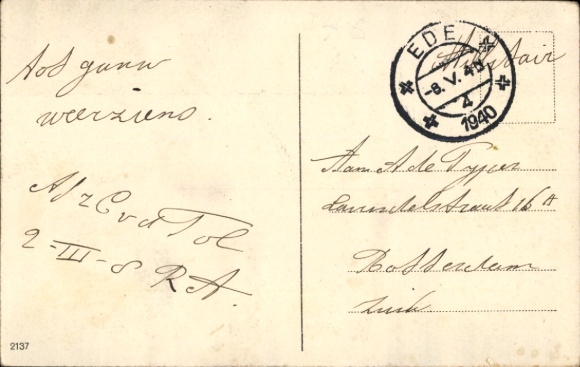 Tot gauw
weerziens.
Afz C v d Tol
2-III-8 R A.
2137
EDE
-8.V.40
4
1940
Militair
Aan A de Pyper
16A
Rotterdam
Zuid